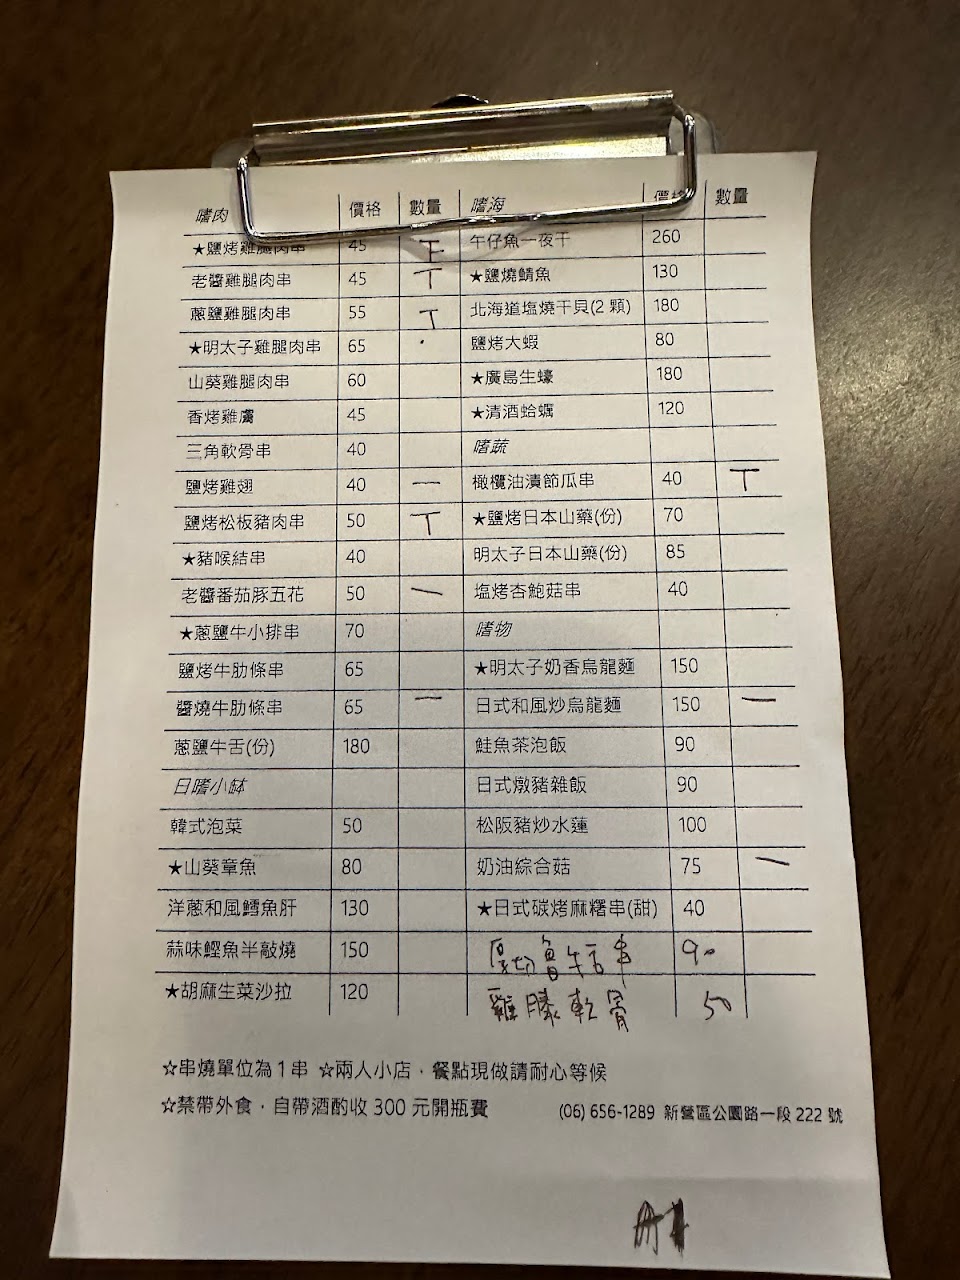 嗜肉 價格 數量 嗜海 價格 數量
★鹽烤雞腿肉串 45 下 午仔魚一夜干 260
老醬雞腿肉串 45 T ★鹽燒鯖魚 130
蔥鹽雞腿肉串 55 T 北海道塩燒干貝(2 顆) 180
★明太子雞腿肉串 65 鹽烤大蝦 80
山葵雞腿肉串 60 ★廣島生蠔 180
香烤雞膚 45 ★清酒蛤蠣 120
三角軟骨串 40 嗜蔬
鹽烤雞翅 40 一 橄欖油漬節瓜串 40 T
鹽烤松板豬肉串 50 T ★鹽烤日本山藥(份) 70
★豬喉結串 40 明太子日本山藥(份) 85
老醬番茄豚五花 50 一 塩烤杏鮑菇串 40
★蔥鹽牛小排串 70 嗜物
鹽烤牛肋條串 65 ★明太子奶香烏龍麵 150
醬燒牛肋條串 65 一 日式和風炒烏龍麵 150 一
蔥鹽牛舌(份) 180 鮭魚茶泡飯 90
日嗜小缽 日式燉豬雜飯 90
韓式泡菜 50 松阪豬炒水蓮 100
★山葵章魚 80 奶油綜合菇 75 一
洋蔥和風鱈魚肝 130 ★日式碳烤麻糬串(甜) 40
蒜味鰹魚半敲燒 150 厚切魯牛舌串 90
★胡麻生菜沙拉 120 雞膝軟骨 50
☆串燒單位為 1 串 ☆兩人小店，餐點現做請耐心等候
☆禁帶外食，自帶酒酌收 300 元開瓶費 (06) 656-1289 新營區公園路一段 222 號